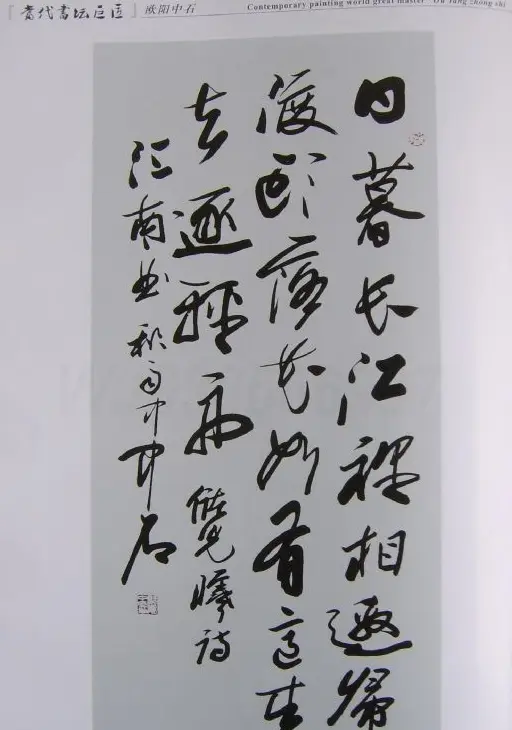 「当代书坛巨匠」欧阳中石
Contemporary painting world great master Ou Yang zhong shi
日暮长江裡相邀歸
渡头落花如有意来
去逐轻舟儲光曦诗
江南曲 中石